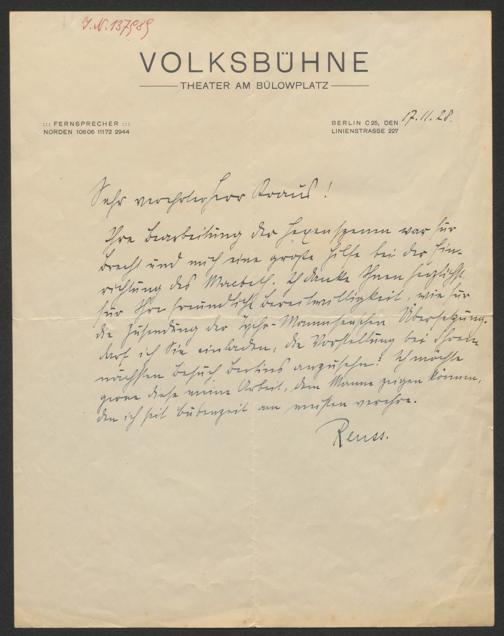 I.N. 137989
VOLKSBÜHNE
THEATER AM BÜLOWPLATZ
::: FERNSPRECHER :::
NORDEN 10606 11172 2944
BERLIN C 25, DEN 17.11.28.
LINIENSTRASSE 227
Sehr verehrter Herr Kraus!
Ihre Bearbeitung der Hexenszenen war für
Brecht und mich eine große Hilfe bei der Ein-
richtung des Macbeth. Ich danke Ihnen herzlichst
für Ihre freundliche Bereitwilligkeit, wie für
die Zusendung der Übersetzung.
Darf ich Sie einladen, die Vorstellung bei Ihrem
nächsten Besuch Berlins anzusehen? Ich möchte
gerne diese meine Arbeit, dem Manne zeigen können,
den ich seit Bubenzeit am meisten verehre.
Reuss.